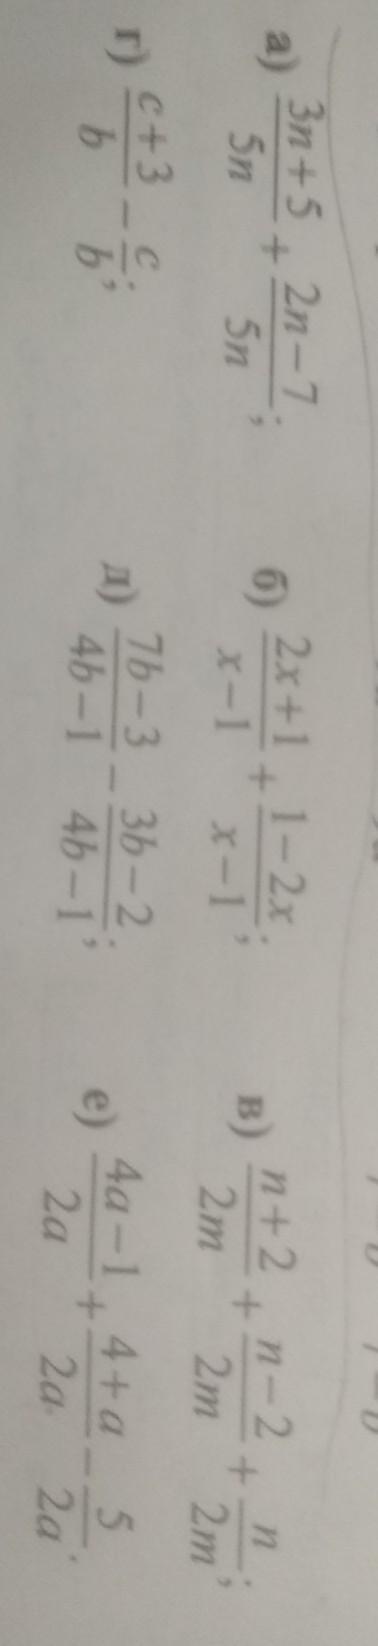 а) (3n + 5)/(5n) + (2n − 7)/(5n); б) (2x + 1)/(x − 1) + (1 − 2x)/(x − 1); в) (n + 2)/(2m) + (n − 2)/(2m) + n/(2m);
г) (c + 3)/b − c/b; д) (7b − 3)/(4b − 1) − (3b − 2)/(4b − 1); е) (4a − 1)/(2a) + (4 + a)/(2a) − 5/(2a).